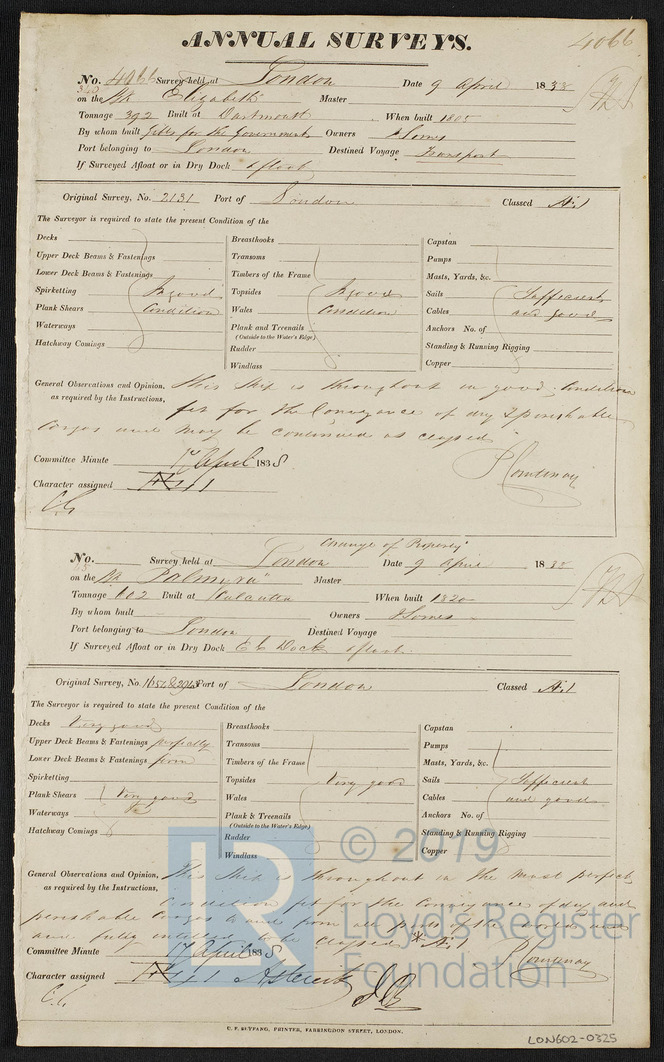 ANNUAL SURVEYS.
4066
No. 4066 Survey held at London Date 9 April 1838
on the Elizabeth Master
Tonnage 392 Built at Dartmouth When built 1805
By whom built for the Government Owners J Somes
Port belonging to London Destined Voyage Transport
If Surveyed Afloat or in Dry Dock afloat
Original Survey, No. 2131 Port of London Classed Æ1
The Surveyor is required to state the present Condition of the
Decks Breasthooks Capstan
Upper Deck Beams & Fastenings Transoms Pumps
Lower Deck Beams & Fastenings Timbers of the Frame Masts, Yards, &c.
Spirketting In good Topsides In good Sails Sufficient
Plank Shears Condition Wales Condition Cables and good
Waterways Plank and Treenails Anchors No. of
(Outside to the Water's Edge)
Hatchway Comings Rudder Standing & Running Rigging
Windlass Copper
General Observations and Opinion, This Ship is throughout in good Condition
as required by the Instructions, fit for the Conveyance of dry & perishable
Cargos and may be continued as classed
Committee Minute 17 April 1838
Character assigned Æ 1
P Courtenay
Change of Property
No. Survey held at London Date 9 April 1838
on the "Palmyra" Master
Tonnage 602 Built at Calcutta When built 1820
By whom built Owners J Somes
Port belonging to London Destined Voyage
If Surveyed Afloat or in Dry Dock Dock afloat.
Original Survey, No. Port of London Classed Æ1
The Surveyor is required to state the present Condition of the
Decks Very good Breasthooks Capstan
Upper Deck Beams & Fastenings perfectly Transoms Pumps
Lower Deck Beams & Fastenings firm Timbers of the Frame Masts, Yards, &c.
Spirketting Topsides Very good Sails Sufficient
Plank Shears Very good Wales Cables and good
Waterways Do Plank & Treenails Anchors No. of
(Outside to the Water's Edge)
Hatchway Comings Rudder Standing & Running Rigging
Windlass Copper
General Observations and Opinion, This Ship is throughout in the most perfect
as required by the Instructions, Condition fit for the Conveyance of dry and
perishable Cargos to and from all parts of the world and
are fully entitled to be Classed * Æ1
Committee Minute 17 April 1838
P Courtenay
Character assigned Æ 1
© 2019
LR
Lloyd's Register
Foundation
C. F. SEYFANG, PRINTER, FARRINGDON STREET, LONDON.
LON602-0325